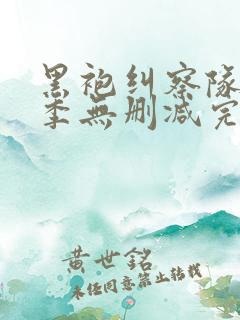 黑袍纠察队
季無删减完
黄世銘
未经同意禁止转载